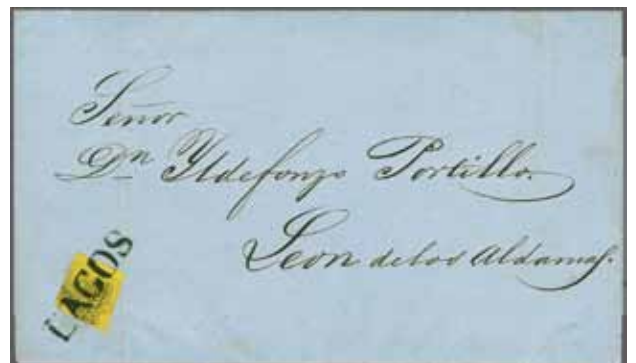 Señor
Dn Yldefonzo Portillo.
Leon delos Aldamas.
LAGOS